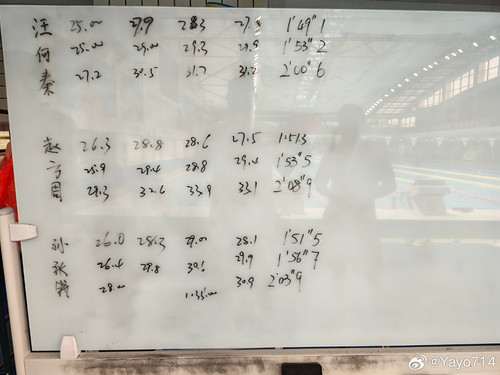 汪 25.00 27.9 28.3 27.8 1'49"1
何 25.00 29.00 29.3 29.9 1'53"2
秦 27.2 30.5 31.7 31.2 2'00"6
赵 26.3 28.8 28.6 27.5 1'51.3
方 25.9 29.4 28.8 29.4 1'53"5
周 29.3 32.6 33.9 33.1 2'08"9
孙 26.0 28.3 29.0 28.1 1'51"5
张 26.4 29.8 30.6 29.9 1'56"7
28.00 30.9 2'03"9
@Yayo714